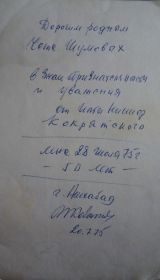 Дорогим родным
Шумовых
в знак признательности
и уважения
от
Кокрятского
мне 28 июля 75 г
- 50 лет -
г. Ашхабад
20.7.75